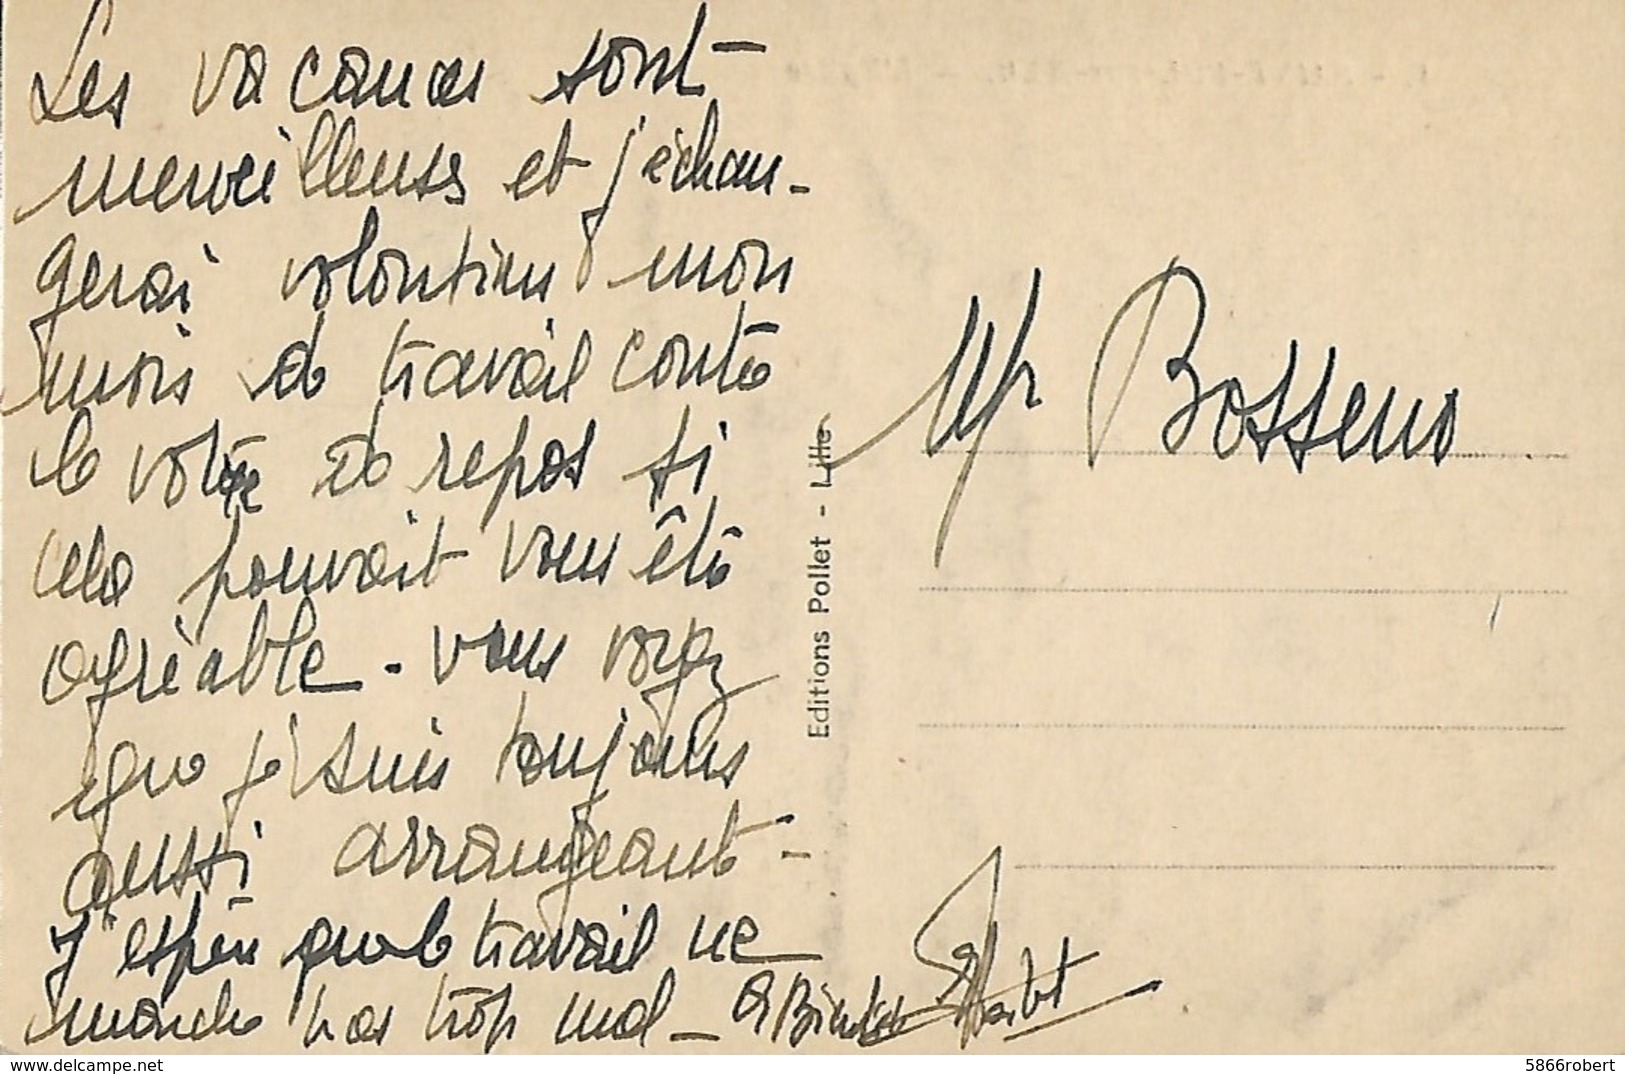 Les vacances sont
merveilleuses et j'échan-
gerai volontiers mon
mois de travail contre
le votre de repos si
cela pouvait vous être
agréable - vous voyez
que je suis toujours
aussi arrangeant -
J'espère que le travail ne
marche pas trop mal - A Bientôt
Mr Bosseno
Editions Pollet - Lille
delcampe.net
5866robert